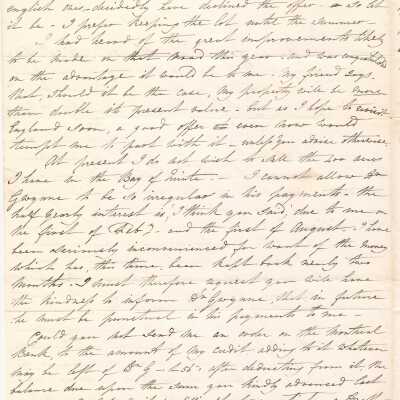 english ones, decidedly have declined the offer - so let
it be - I prefer keeping the lot until the summer -
I had heard of the great improvements likely
to be made on that Road this year - and was
on the advantage it would be to me - My friend says,
that, should it be the case, my property will be more
than double its present value - but as I hope to
England soon, a good offer even now would
tempt me to part with it - unless you advise otherwise.
At present I do not wish to sell the 200 acres
I have in the Bay of Quinte. - I cannot allow Dr
Gwynne to be so irregular in his payments - the
half yearly interest is, I think you said, due to me on
the first of Feby - and the first of August. I have
been seriously inconvenienced for want of the money
which has, this time, been kept back nearly two
months - I must therefore request you will have
the kindness to inform Dr Gwynne, that in future
he must be punctual in his payments to me -
Could you not send me an order on the Montreal
Bank, to the amount of my credit adding to it whatever
may be left of Dr G - after deducting from it, the
balance due upon the sum you kindly advanced last